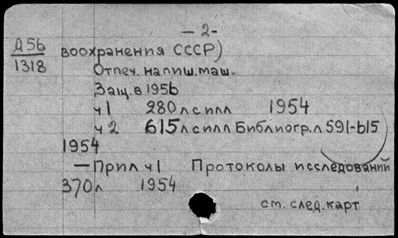 — 2 —
Д56
1318
воохранения СССР)
Отпеч. на пиш. маш.
Защ. в 1956
ч1 280 л с илл 1954
ч2 615 л с илл Библиогр. л 591-615
1954
— Прил ч1 Протоколы исследований
370 л 1954
см. след. карт